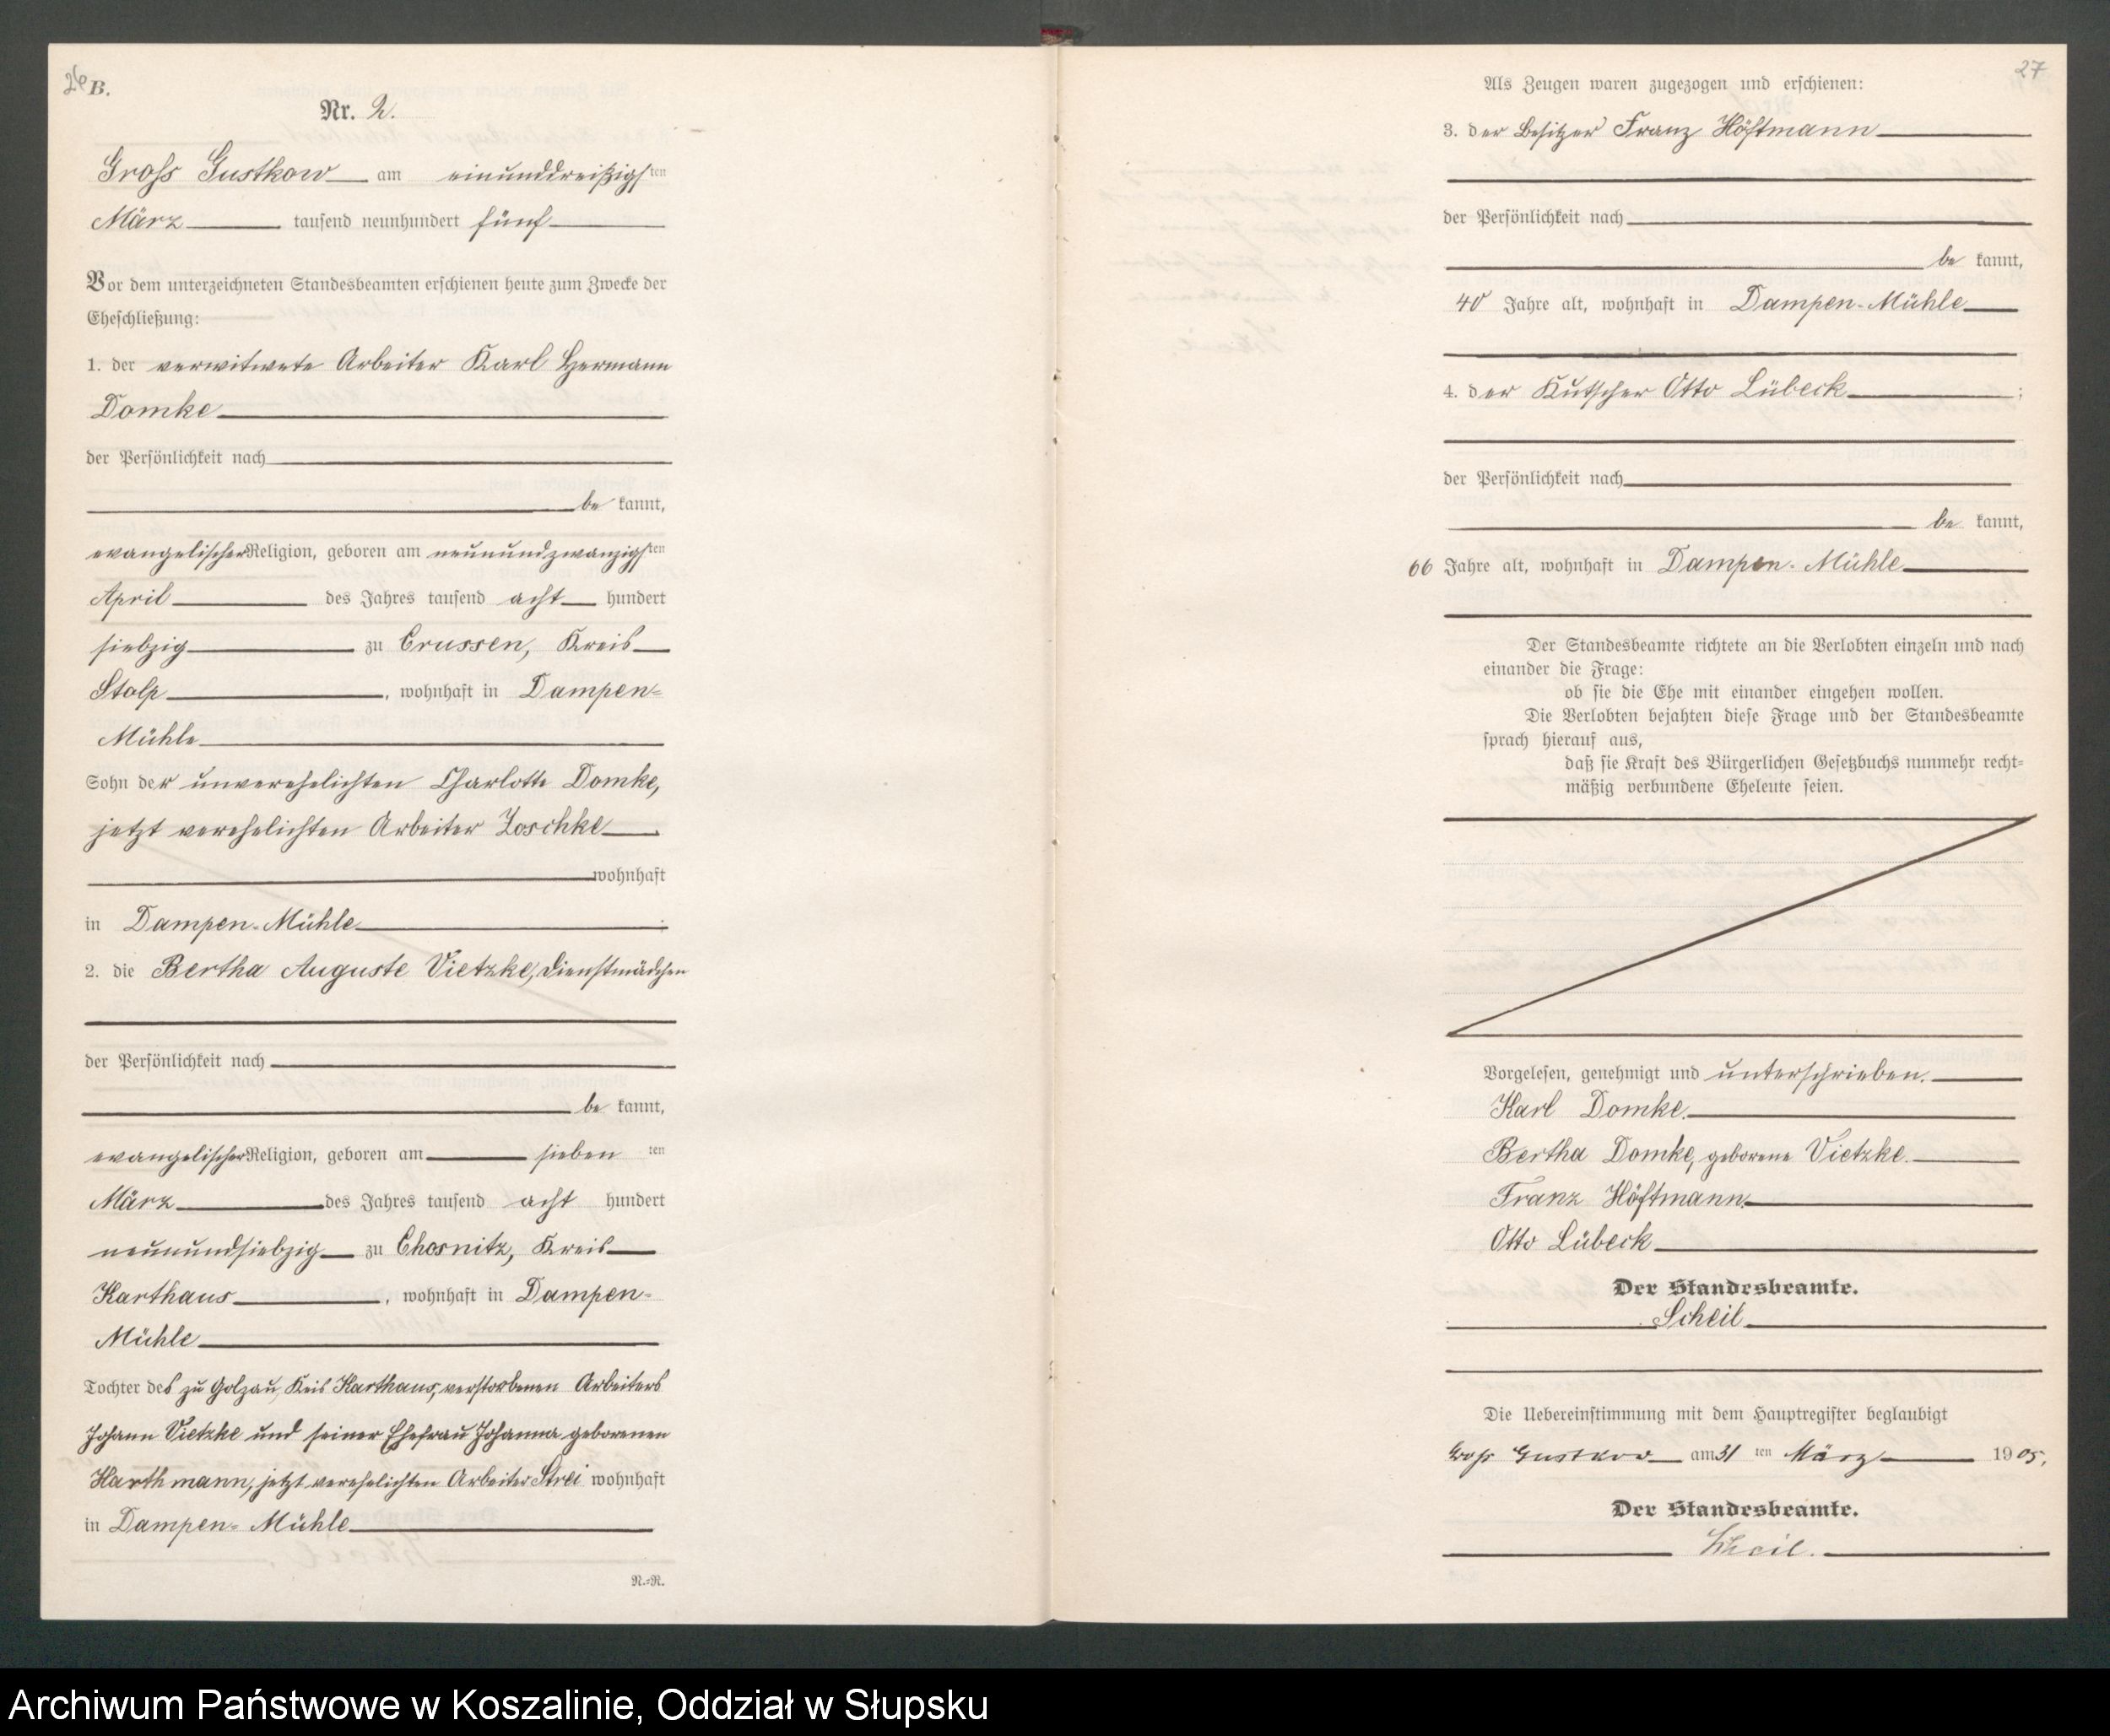 26
B.
Nr. 2.
Gross Gustkow am einunddreißigsten
März tausend neunhundert fünf
Vor dem unterzeichneten Standesbeamten erschienen heute zum Zwecke der
Eheschließung:
1. der verwitwete Arbeiter Karl Hermann
Domke
der Persönlichkeit nach
be kannt,
evangelischer Religion, geboren am neunundzwanzigsten
April des Jahres tausend acht hundert
siebzig zu Crussen, Kreis
Stolp, wohnhaft in Dampen-
Mühle
Sohn der unverehelichten Charlotte Domke,
jetzt verehelichten Arbeiter Zoschke
wohnhaft
in Dampen-Mühle
2. die Bertha Auguste Vietzke, Dienstmädchen
der Persönlichkeit nach
be kannt,
evangelischer Religion, geboren am sieben ten
März des Jahres tausend acht hundert
neunundsiebzig zu Chosnitz, Kreis
Karthaus, wohnhaft in Dampen-
Mühle
Tochter des zu Golzau, Keis Karthaus, verstorbenen Arbeiters
Johann Vietzke und seiner Ehefrau Johanna geborenen
Harthmann, jetzt verehelichten Arbeiter Strei wohnhaft
in Dampen-Mühle
N.=R.
27
Als Zeugen waren zugezogen und erschienen:
3. der Besitzer Franz Höftmann
der Persönlichkeit nach
be kannt,
40 Jahre alt, wohnhaft in Dampen-Mühle
4. der Kutscher Otto Lübeck;
der Persönlichkeit nach
be kannt,
66 Jahre alt, wohnhaft in Dampen-Mühle
Der Standesbeamte richtete an die Verlobten einzeln und nach
einander die Frage:
ob sie die Ehe mit einander eingehen wollen.
Die Verlobten bejahten diese Frage und der Standesbeamte
sprach hierauf aus,
daß sie kraft des Bürgerlichen Gesetzbuchs nunmehr recht=
mäßig verbundene Eheleute seien.
Vorgelesen, genehmigt und unterschrieben.
Karl Domke.
Bertha Domke, geborene Vietzke.
Franz Höftmann.
Otto Lübeck
Der Standesbeamte.
Scheil
Die Uebereinstimmung mit dem Hauptregister beglaubigt
Groß Gustkow am 31 ten März 1905.
Der Standesbeamte.
Scheil.
Archiwum Państwowe w Koszalinie, Oddział w Słupsku